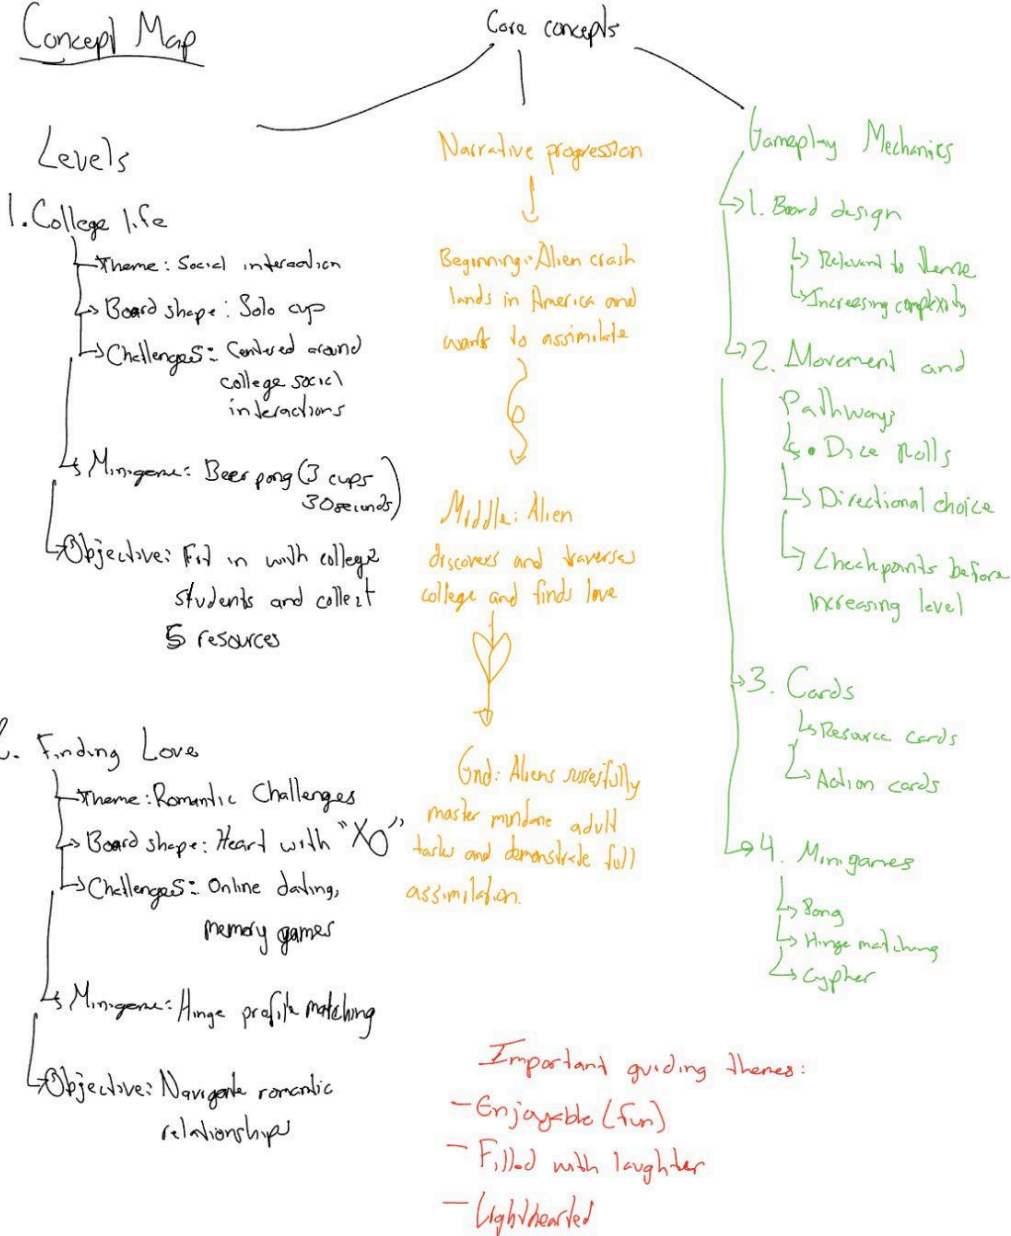 Concept Map
Core concepts
Levels
1. College life
Theme: Social interaction
Board shape: Solo cup
Challenges: Centered around
college social
interactions
Minigame: Beer pong (3 cups
30 seconds)
Objective: Fit in with college
students and collect
5 resources
2. Finding Love
Theme: Romantic Challenges
Board shape: Heart with "XO"
Challenges: Online dating,
memory games
Minigame: Hinge profile matching
Objective: Navigate romantic
relationships
Narrative progression
Beginning: Alien crash
lands in America and
wants to assimilate
Middle: Alien
discovers and traverses
college and finds love
End: Aliens successfully
master mundane adult
tasks and demonstrate full
assimilation.
Gameplay Mechanics
1. Board design
Relevant to theme
Increasing complexity
2. Movement and
Pathways
• Dice Rolls
Directional choice
Checkpoints before
increasing level
3. Cards
Resource cards
Action cards
4. Minigames
Pong
Hinge matching
Cypher
Important guiding themes:
- Enjoyable (fun)
- Filled with laughter
- Lighthearted